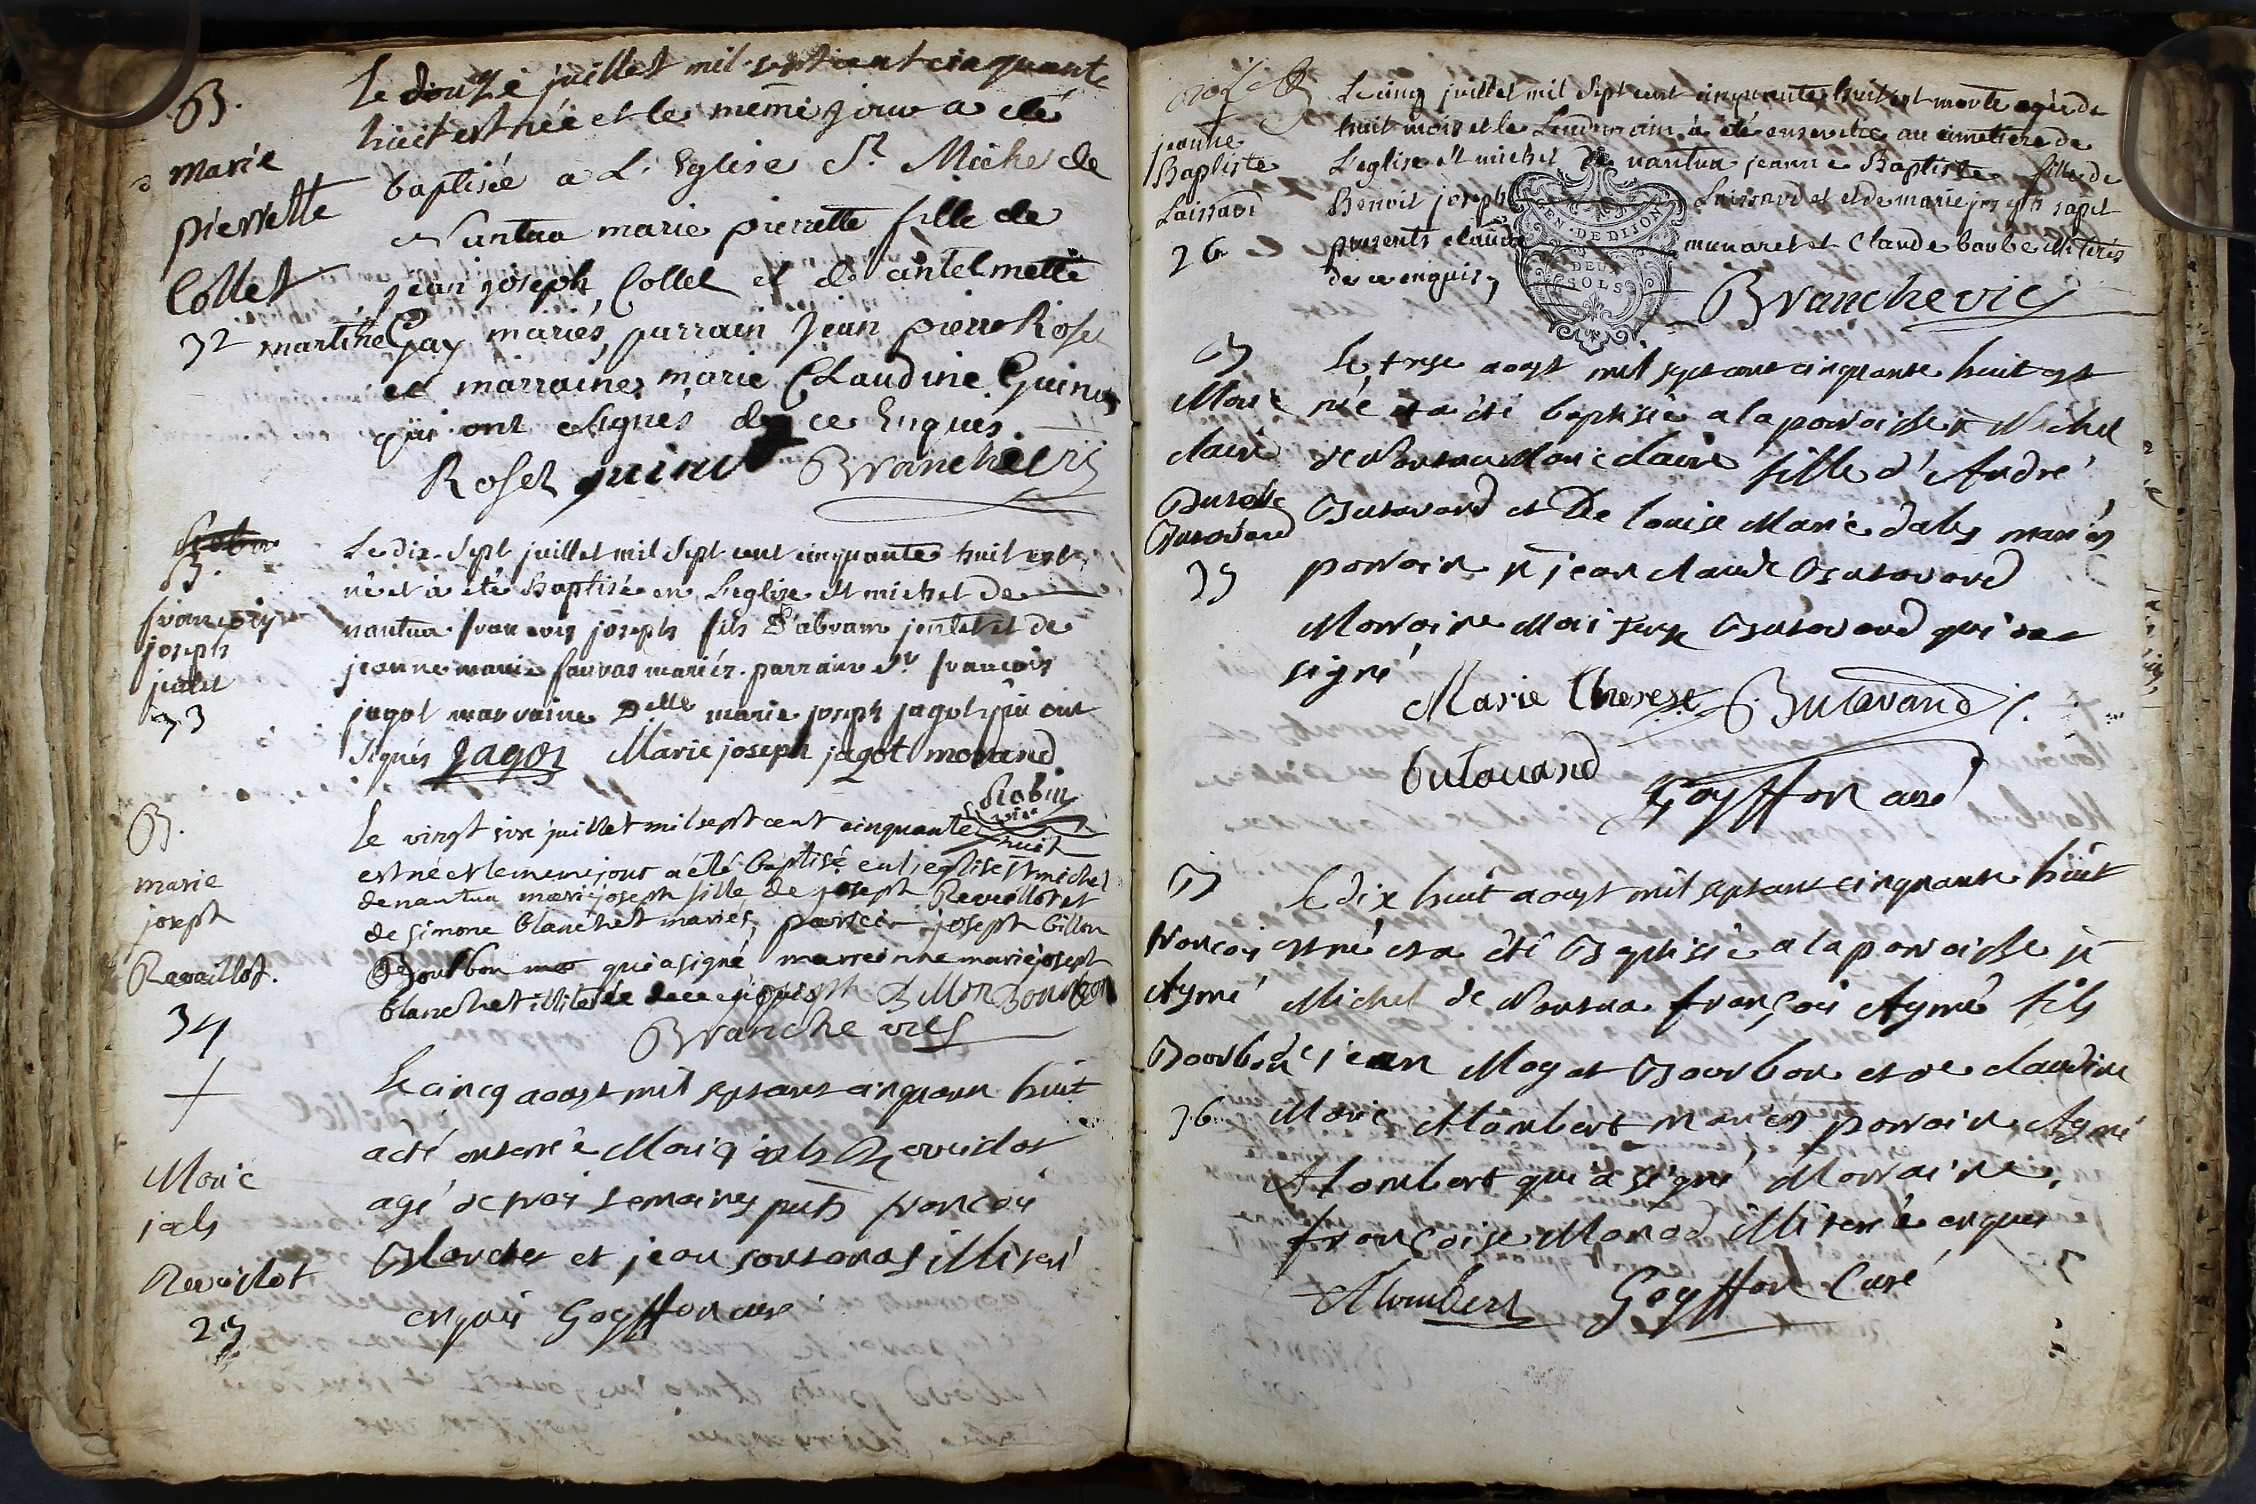 B.
marie
pierrette
Collet
32
Le douze juillet mil sept cent cinquante
huit est née et le même jour a eté
baptisée a L'Eglise St Michel de
Nantua marie pierrette fille de
jean joseph Collet et de antelmette
martine Gay mariés, parrain Jean pierre Roset
et marraine marie Claudine Guinet
qui ont signés de ce Enquis
Roset guinet Branche vic
B.
francois
joseph
jentet
33
Le dix-sept juillet mil sept cent cinquante huit est
né et à été Baptisé en L'eglise st michel de
nantua francois joseph fils d'abram jentet et de
jeanne marie favras mariés. parrain Sr francois
jagot marraine Delle marie joseph jagot qui ont
signés Jagot Marie joseph jagot morand
Robin
vic
B.
marie
joseph
Revaillot.
34
Le vingt six juillet mil sept cent cinquante huit
est né et le meme jour a été baptisé en l'eglise st michel
de nantua marie joseph fille de joseph Revaillot et
de simone blanchet mariés, parrein joseph billon
Bourbon qui a signé marreinne marie joseph
blanchet illiterée de ce enquis joseph Billon Bourbon
Branche vic
+
Marie
josph
Revaillot
29
Le cincq aoust mil sept cent cinquante huit
a été enterré Marie josph Revaillot
agé de trois semaines puts francois
Blanchet et jean illiteré
enquis Goyffon curé
jeanne
Baptiste
Laissard
26
Le cinq juillet mil sept cent cinquante huit est morte agée de
huit mois et le Lendemain à été ensevelie au cimetiere de
L'eglise st michel de nantua jeanne Baptiste fille de
Benoit joseph Laissard et de marie joseph sapet
presents claude munaret et Claude barbe illiterés
de ce enquis,
GEN. DE DIJON
DEUX
SOLS
Branche vic
B
Marie
claire
Butavand
35
Le treze aoust mil sept cent cinquante huit est
née et a été baptisée a la parroisse st Michel
de Nantua Marie claire fille d'André
Butavand et De louise Marie daly mariés
parrain sr jean claude Butavand
Marraine Marie terese Butavand qui ont
signé
Marie Therese Butavand
butavand
Goyffon curé
B
francois
Aymé
Bourbon
36
Le dix huit aoust mil sept cent cinquante huit
est né et a été Baptisé a la parroisse st
Michel de Nantua françois Aymé fils
de jean Bourbon et de claudine
Marie Alombert mariés parrain Aymé
Alombert qui a signé Marraine
françoise Monod illiterée enquis
Alombert Goyffon Curé